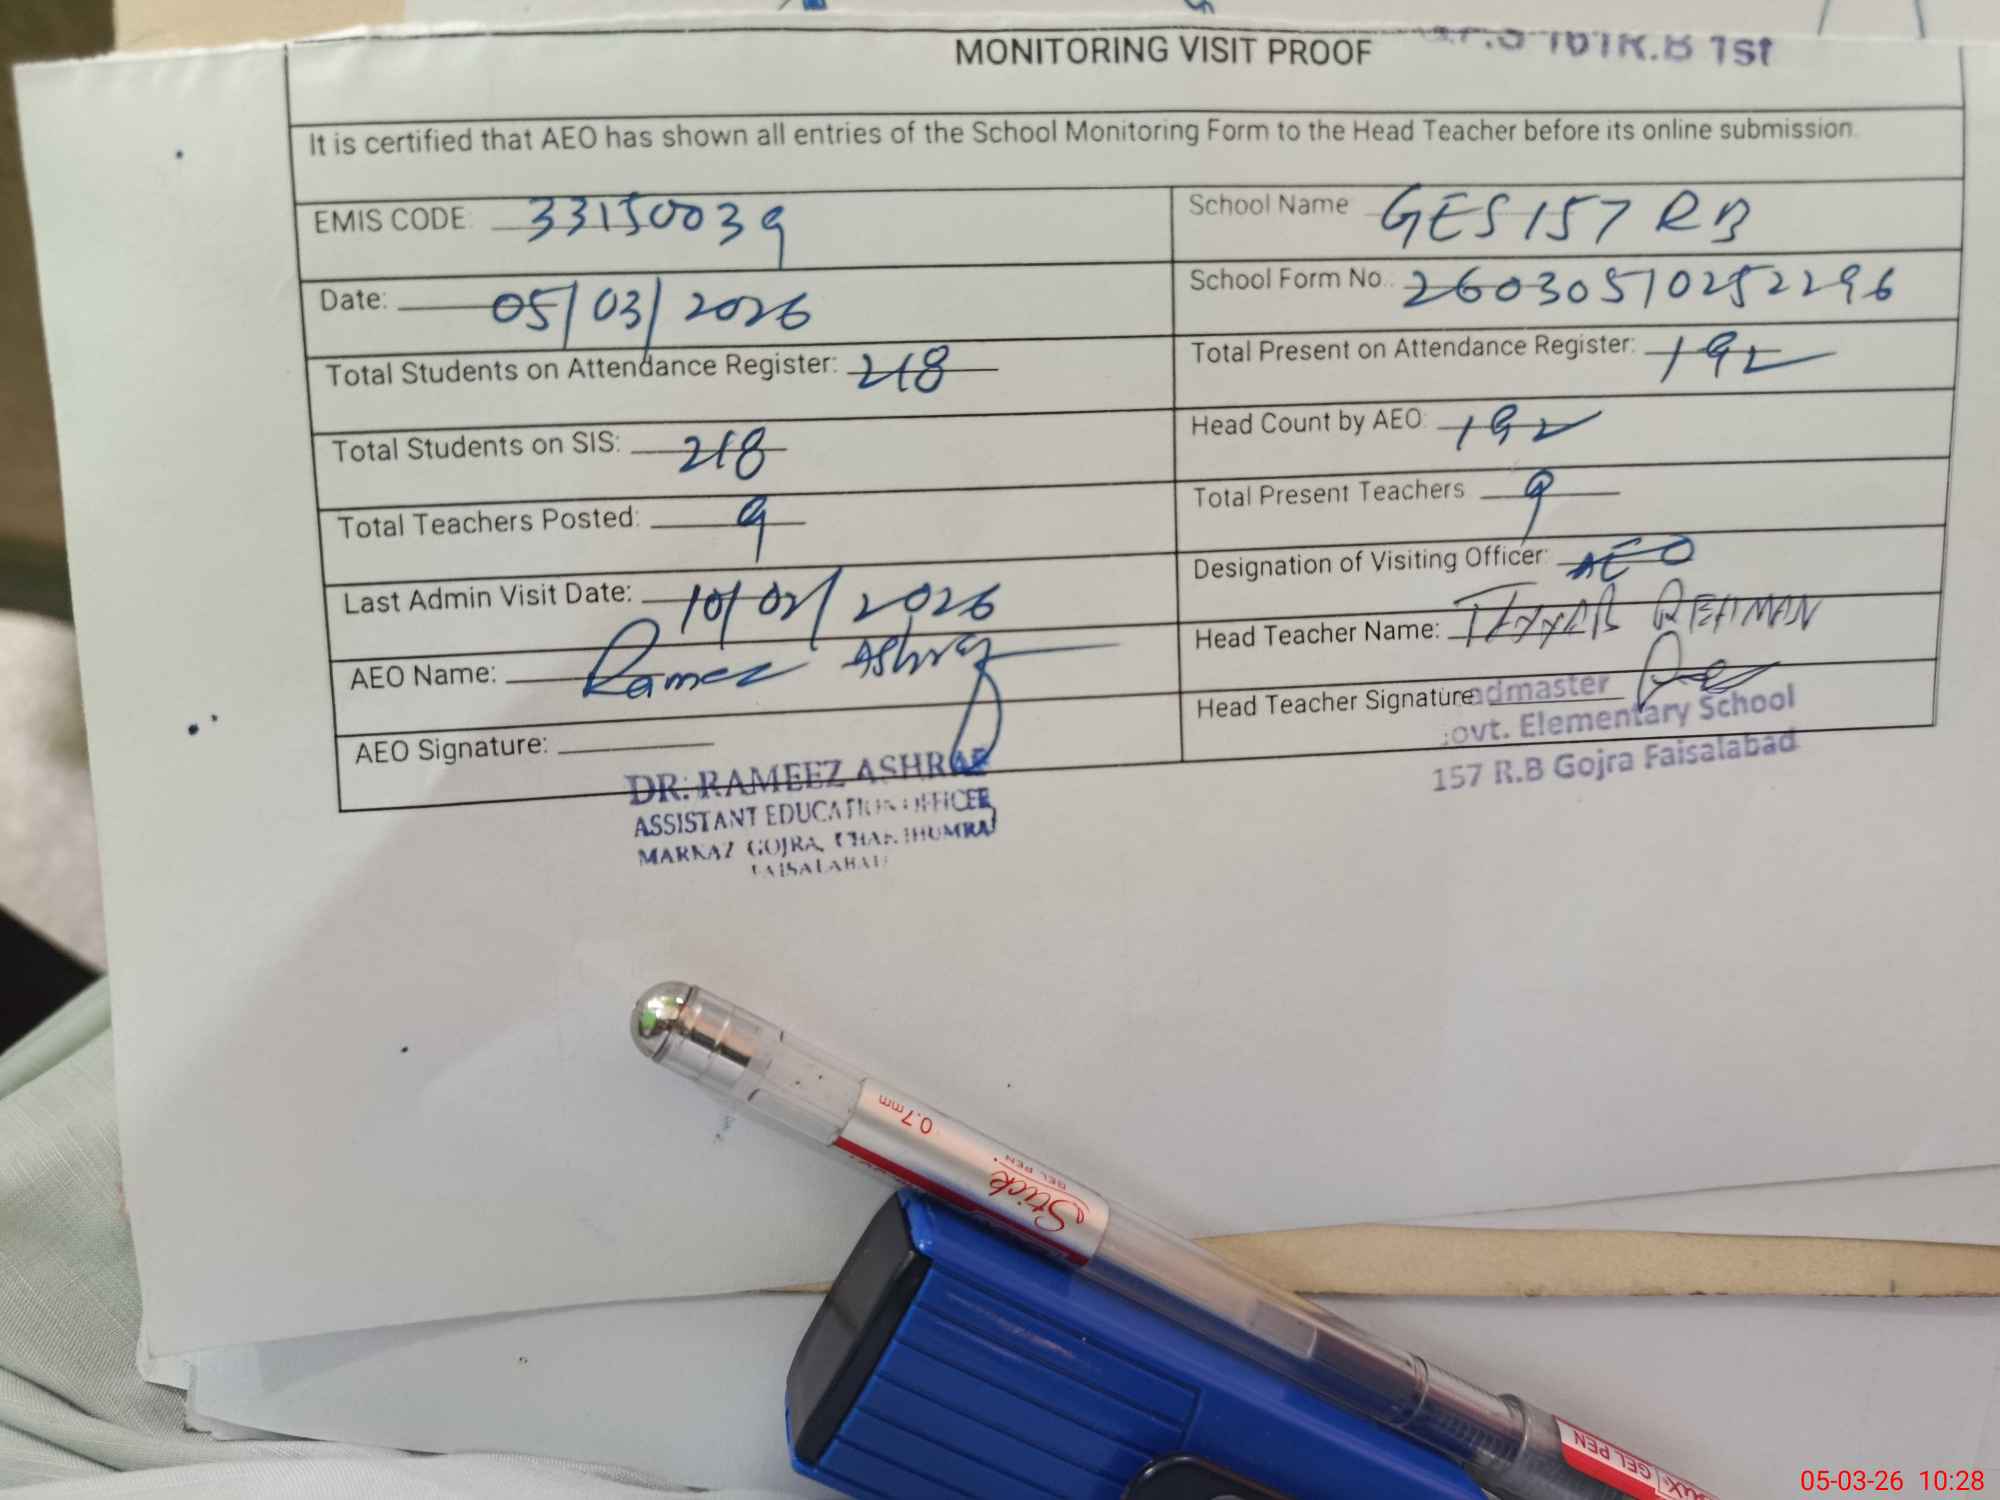 MONITORING VISIT PROOF
R.B 1st
It is certified that AEO has shown all entries of the School Monitoring Form to the Head Teacher before its online submission.
EMIS CODE: 33150039
School Name GES 157 RB
Date: 05/03/2026
School Form No.: 26030510252296
Total Students on Attendance Register: 218
Total Present on Attendance Register: 192
Total Students on SIS: 218
Head Count by AEO: 192
Total Teachers Posted: 9
Total Present Teachers 9
Last Admin Visit Date: 10/02/2026
Designation of Visiting Officer: AEO
AEO Name: Rameez Ashraf
Head Teacher Name: TAYYAB REHMAN
AEO Signature:
Head Teacher Signature
admaster
ovt. Elementary School
157 R.B Gojra Faisalabad
DR: RAMEEZ ASHRAF
ASSISTANT EDUCATION OFFICER
MARKAZ GOJRA, CHAK JHUMRA
FAISALABAD
0.7mm
Stick
GEL PEN
GEL PEN
05-03-26 10:28